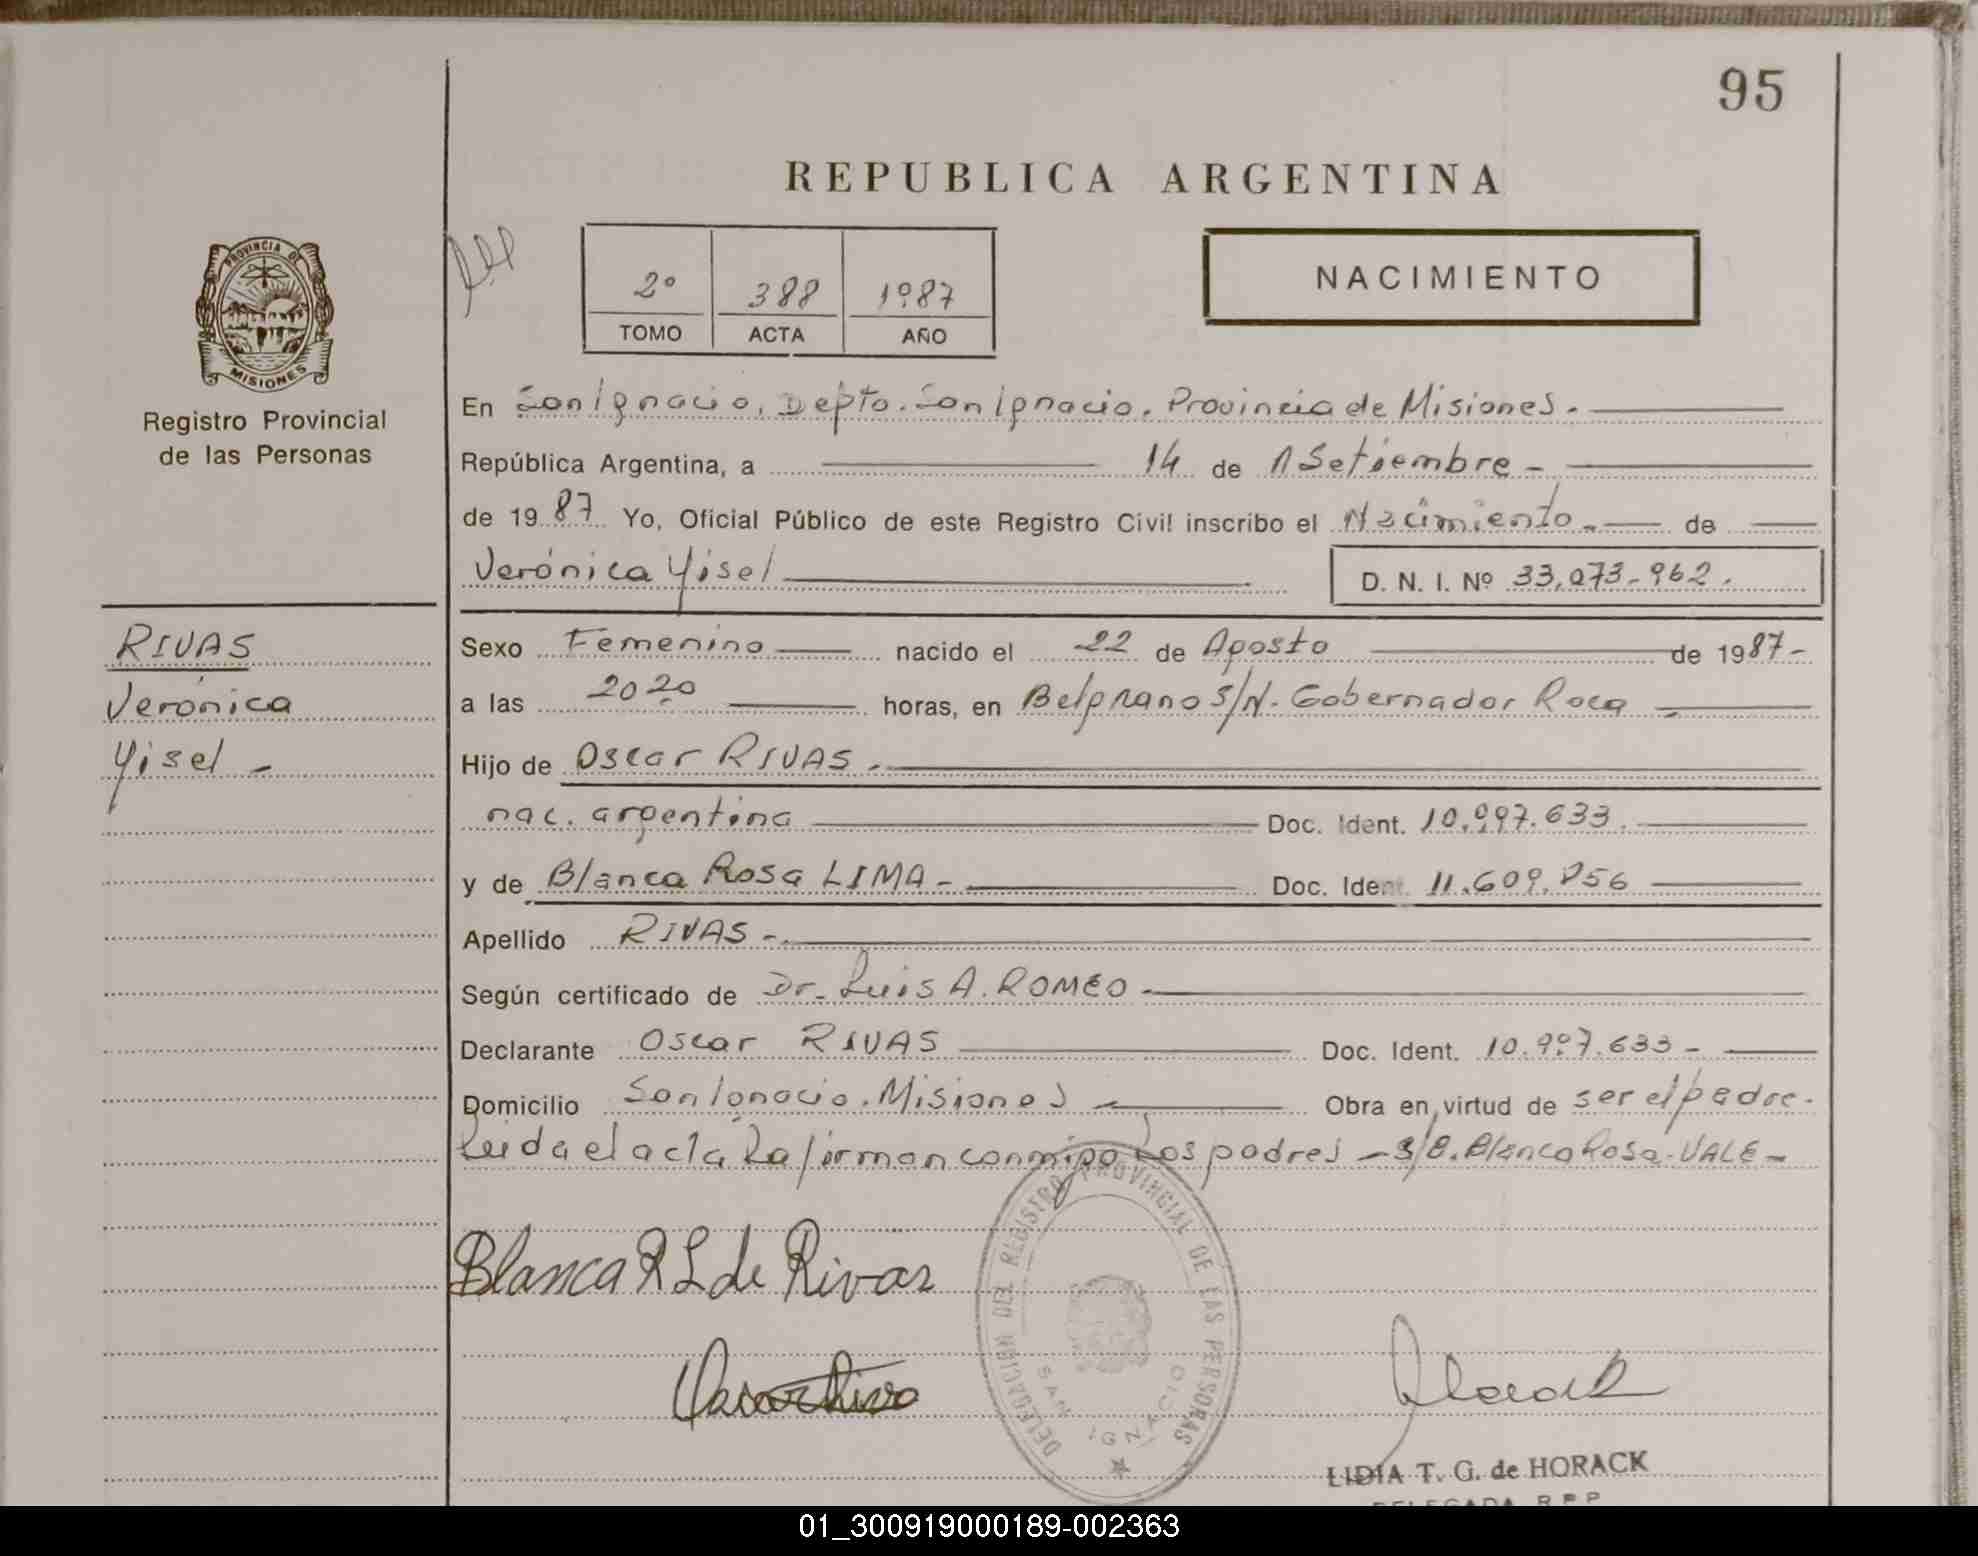 95
REPUBLICA ARGENTINA
PROVINCIA DE
MISIONES
Registro Provincial
de las Personas
2º 388 1987
TOMO ACTA AÑO
NACIMIENTO
En San Ignacio, Depto. San Ignacio. Provincia de Misiones.
República Argentina, a 14 de Setiembre -
de 1987 Yo, Oficial Público de este Registro Civil inscribo el Nacimiento - de
Verónica Yisel D. N. I. Nº 33.073.962.
RIVAS
Verónica
Yisel -
Sexo Femenino nacido el 22 de Agosto de 1987-
a las 2020 horas, en Belgrano S/N. Gobernador Roca -
Hijo de Oscar RIVAS.
nac. argentina Doc. Ident. 10.997.633.
y de Blanca Rosa LIMA - Doc. Ident. 11.609.856
Apellido RIVAS -
Según certificado de Dr. Luis A. ROMEO -
Declarante Oscar RIVAS Doc. Ident. 10.997.633 -
Domicilio San Ignacio. Misiones Obra en virtud de ser el padre.
Leida el acta La firman conmigo Los padres - S/B. Blanca Rosa. VALE -
Blanca R L de Rivas
DELEGACION DEL REGISTRO PROVINCIAL DE LAS PERSONAS
SAN IGNACIO
LIDIA T. G. de HORACK
DELEGADA R.P.P.
01_300919000189-002363